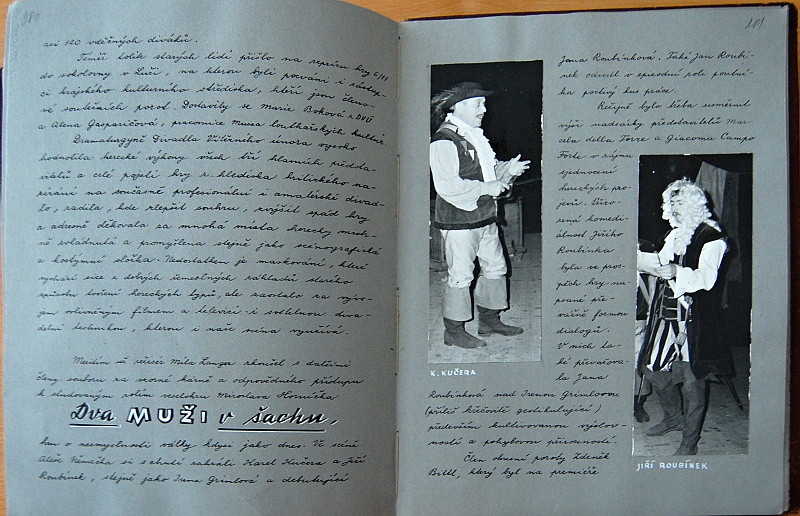 280
asi 120 vděčných diváků.
Téměř tolik starých lidí přišlo na reprízu hry 6/III
do sokolovny v Luži, na kterou byli pozváni i zástup-
ci krajského kulturního střediska, kteří jsou členo-
vé soutěžních porot. Dostavily se Marie Boková z DVÚ
a Alena Gasparičová, pracovnice Musea loutkářských kultur.
Dramaturgyně Divadla Vítězného února vysoko
hodnotila herecké výkony všech tří hlavních předsta-
vitelů a celé pojetí hry z hlediska kritického na-
zírání na současné profesionální i amatérské divad-
lo, radila, kde zlepšit souhru, zvýšit spád hry
a adresně děkovala za mnohá místa herecky mistr-
ně zvládnutá a promyšlená stejně jako scénografická
a kostýmní složka. Nedostatkem je maskování, které
vychází sice z dobrých řemeslných základů starého
způsobu tvoření hereckých typů, ale zaostalo za vývo-
jem ovlivněným filmem a televizí i světelnou diva-
delní technikou, kterou i naše scéna vyuřívá.
Mezitím už režisér Míla Langer zkoušel s dalšími
členy souboru za vzorné kázně a odpovědného přístupu
k studovaným rolím veselohru Miroslava Horníčka
Dva MUŽI v šachu,
hru o nesmyslnosti války kdysi jako dnes. Ve scéně
Aleše Němečka si z chuti zahráli Karel Kučera a Jiří
Roubínek, stejně jako Irena Grimlová a debutující
281
Jana Roubínková. Také Jan Roubí-
nek odvedl v epizodní roli poutní-
ka poctivý kus práce.
Režijně bylo třeba usměrnit
výši nadsázky představitelů Mar-
cela della Torre a Giacoma Campo
Forte v zájmu
sjednocení
hereckých pro-
jevů. Štíro-
zená komedi-
álnost Jiřího
Roubínka
byla ve pros-
pěch hry na-
psané pře-
vážně formou
dialogů.
V nich ta-
ké převažova-
la Jana
Roubínková nad Irenou Grimlovou
(příliš křečovitě gestikulující)
především kultivovanou výslov-
ností a pohybovou přirozeností.
Člen okresní poroty Zdeněk
Bittl, který byl na premiéře
K. KUČERA
JIŘÍ ROUBÍNEK